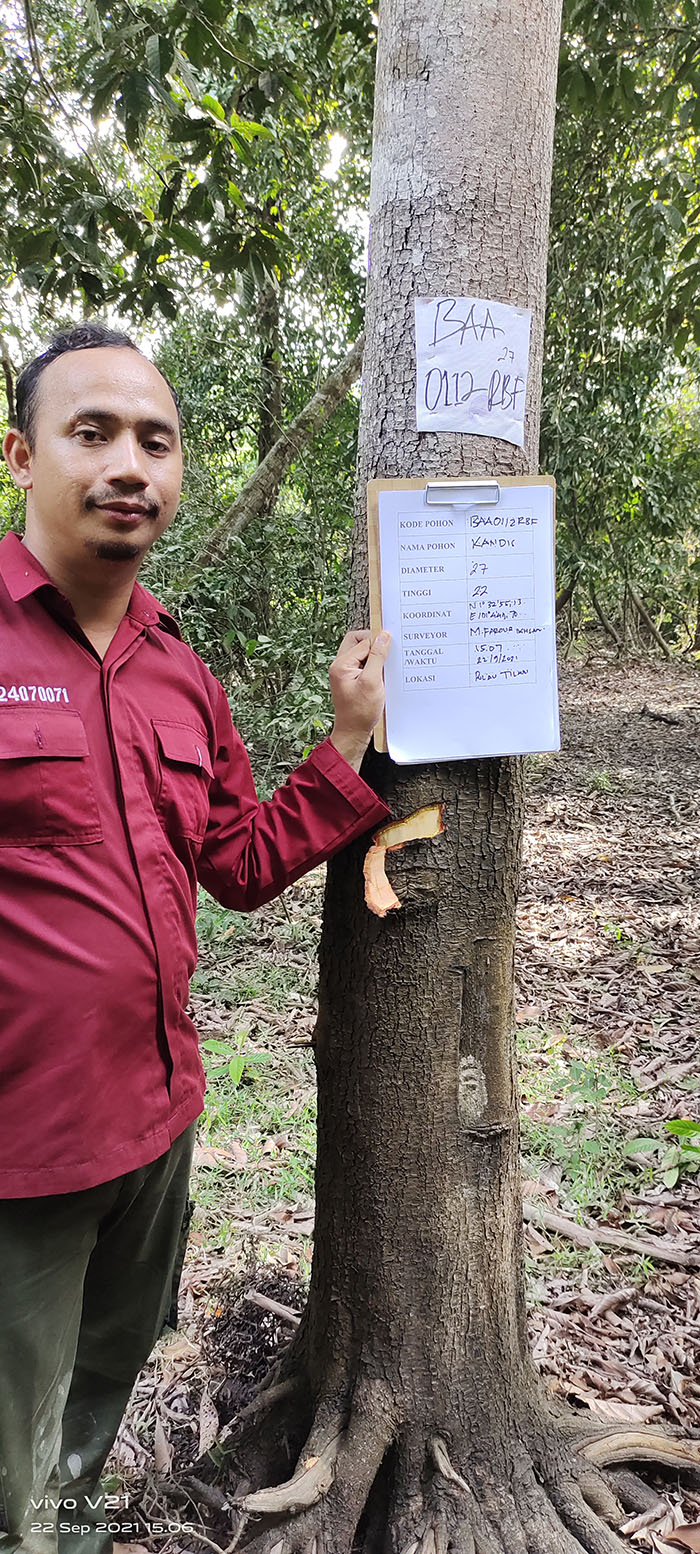 BAA
27
0112 RBF
KODE POHON BAA0112RBF
NAMA POHON KANDIS
DIAMETER 27
TINGGI 22
KOORDINAT N 1° 32' 55,13
E 101°
SURVEYOR M. FAROUR
TANGGAL /WAKTU 15.07
22/9/2021
LOKASI
24070071
vivo V21
22 Sep 2021 15.06